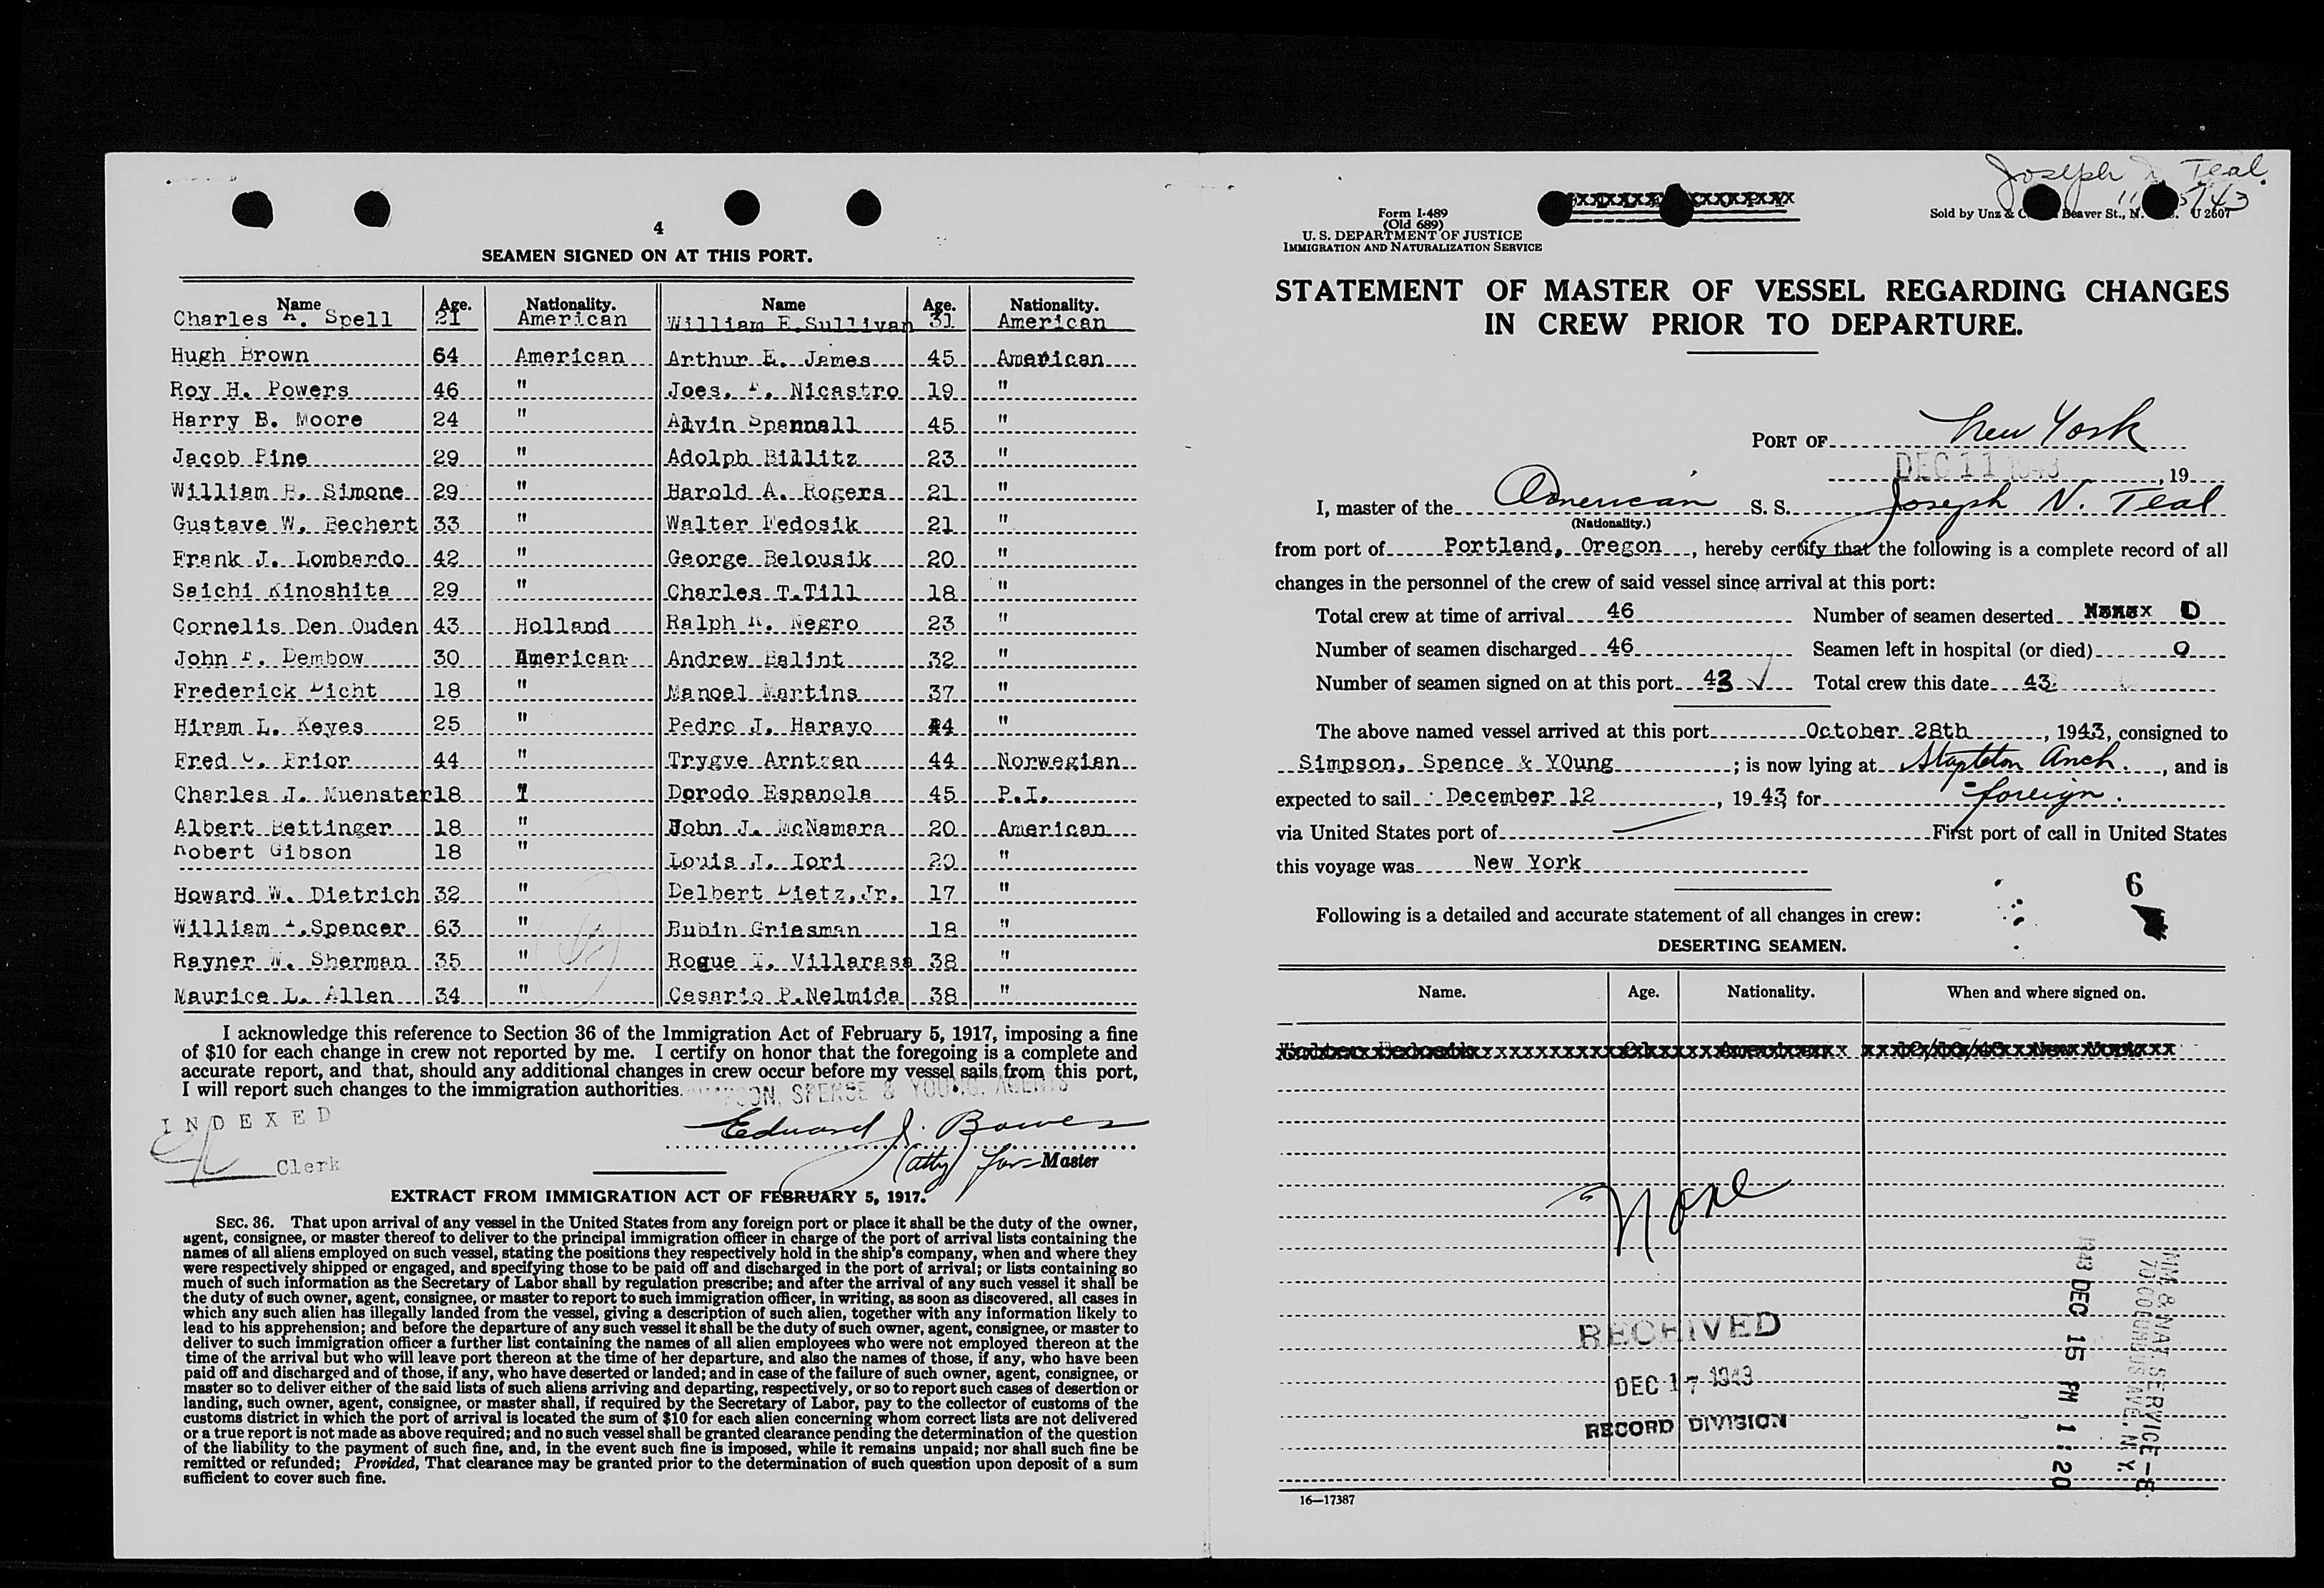 4
SEAMEN SIGNED ON AT THIS PORT.
Name Age. Nationality. Name Age. Nationality.
Charles A. Spell 21 American William E.Sullivan 31 American
Hugh Brown 64 American Arthur E. James 45 American
Roy H. Powers 46 " Joes. F. Nicastro 19 "
Harry B. Moore 24 " Alvin Spannall 45 "
Jacob Pine 29 " Adolph Billitz 23 "
William R. Simone 29 " Harold A. Rogers 21 "
Gustave W. Bechert 33 " Walter Fedosik 21 "
Frank J. Lombardo 42 " George Belousik 20 "
Saichi Kinoshita 29 " Charles T.Till 18 "
Cornelis Den Ouden 43 Holland Ralph R. Negro 23 "
John F. Dembow 30 American Andrew Balint 32 "
Frederick Licht 18 " Manoel Martins 37 "
Hiram L. Keyes 25 " Pedro J. Harayo 44 "
Fred C. Prior 44 " Trygve Arntzen 44 Norwegian
Charles J. Muenster 18 " Dorodo Espanola 45 P.I.
Albert Bettinger 18 " John J. McNamara 20 American
Robert Gibson 18 " Louis J. Iori 20 "
Howard W. Dietrich 32 " Delbert Dietz,Jr. 17 "
William A.Spencer 63 " Rubin Griesman 18 "
Rayner W. Sherman 35 " Rogue I. Villarasa 38 "
Maurice L. Allen 34 " Cesario P.Nelmida 38 "
I acknowledge this reference to Section 36 of the Immigration Act of February 5, 1917, imposing a fine
of $10 for each change in crew not reported by me. I certify on honor that the foregoing is a complete and
accurate report, and that, should any additional changes in crew occur before my vessel sails from this port,
I will report such changes to the immigration authorities.
SIMPSON, SPENSE & YOUNG, AGENTS
INDEXED
Edward J. Bowes
Clerk
(atty) for Master
EXTRACT FROM IMMIGRATION ACT OF FEBRUARY 5, 1917.
SEC. 36. That upon arrival of any vessel in the United States from any foreign port or place it shall be the duty of the owner,
agent, consignee, or master thereof to deliver to the principal immigration officer in charge of the port of arrival lists containing the
names of all aliens employed on such vessel, stating the positions they respectively hold in the ship's company, when and where they
were respectively shipped or engaged, and specifying those to be paid off and discharged in the port of arrival; or lists containing so
much of such information as the Secretary of Labor shall by regulation prescribe; and after the arrival of any such vessel it shall be
the duty of such owner, agent, consignee, or master to report to such immigration officer, in writing, as soon as discovered, all cases in
which any such alien has illegally landed from the vessel, giving a description of such alien, together with any information likely to
lead to his apprehension; and before the departure of any such vessel it shall be the duty of such owner, agent, consignee, or master to
deliver to such immigration officer a further list containing the names of all alien employees who were not employed thereon at the
time of the arrival but who will leave port thereon at the time of her departure, and also the names of those, if any, who have been
paid off and discharged and of those, if any, who have deserted or landed; and in case of the failure of such owner, agent, consignee, or
master so to deliver either of the said lists of such aliens arriving and departing, respectively, or so to report such cases of desertion or
landing, such owner, agent, consignee, or master shall, if required by the Secretary of Labor, pay to the collector of customs of the
customs district in which the port of arrival is located the sum of $10 for each alien concerning whom correct lists are not delivered
or a true report is not made as above required; and no such vessel shall be granted clearance pending the determination of the question
of the liability to the payment of such fine, and, in the event such fine is imposed, while it remains unpaid; nor shall such fine be
remitted or refunded; Provided, That clearance may be granted prior to the determination of such question upon deposit of a sum
sufficient to cover such fine.
Joseph N. Teal
Form I-489
(Old 689)
U. S. DEPARTMENT OF JUSTICE
IMMIGRATION AND NATURALIZATION SERVICE
Sold by Unz & Beaver St., N. U 2607
STATEMENT OF MASTER OF VESSEL REGARDING CHANGES
IN CREW PRIOR TO DEPARTURE.
PORT OF New York
DEC 11 1943, 19
I, master of the American S. S. Joseph N. Teal
(Nationality.)
from port of Portland, Oregon, hereby certify that the following is a complete record of all
changes in the personnel of the crew of said vessel since arrival at this port:
Total crew at time of arrival 46 Number of seamen deserted 0
Number of seamen discharged 46 Seamen left in hospital (or died) 0
Number of seamen signed on at this port 43 Total crew this date 43
The above named vessel arrived at this port October 28th, 1943, consigned to
Simpson, Spence & YOung; is now lying at Stapleton Anch., and is
expected to sail December 12, 1943 for foreign.
via United States port of First port of call in United States
this voyage was New York
6
Following is a detailed and accurate statement of all changes in crew:
DESERTING SEAMEN.
Name. Age. Nationality. When and where signed on.
None
RECEIVED
DEC 17 1943
RECORD DIVISION
1943 DEC 15 PM 1:20
IMM. & NAT. SERVICE
70 COLUMBUS AVE. N.Y.
16—17387